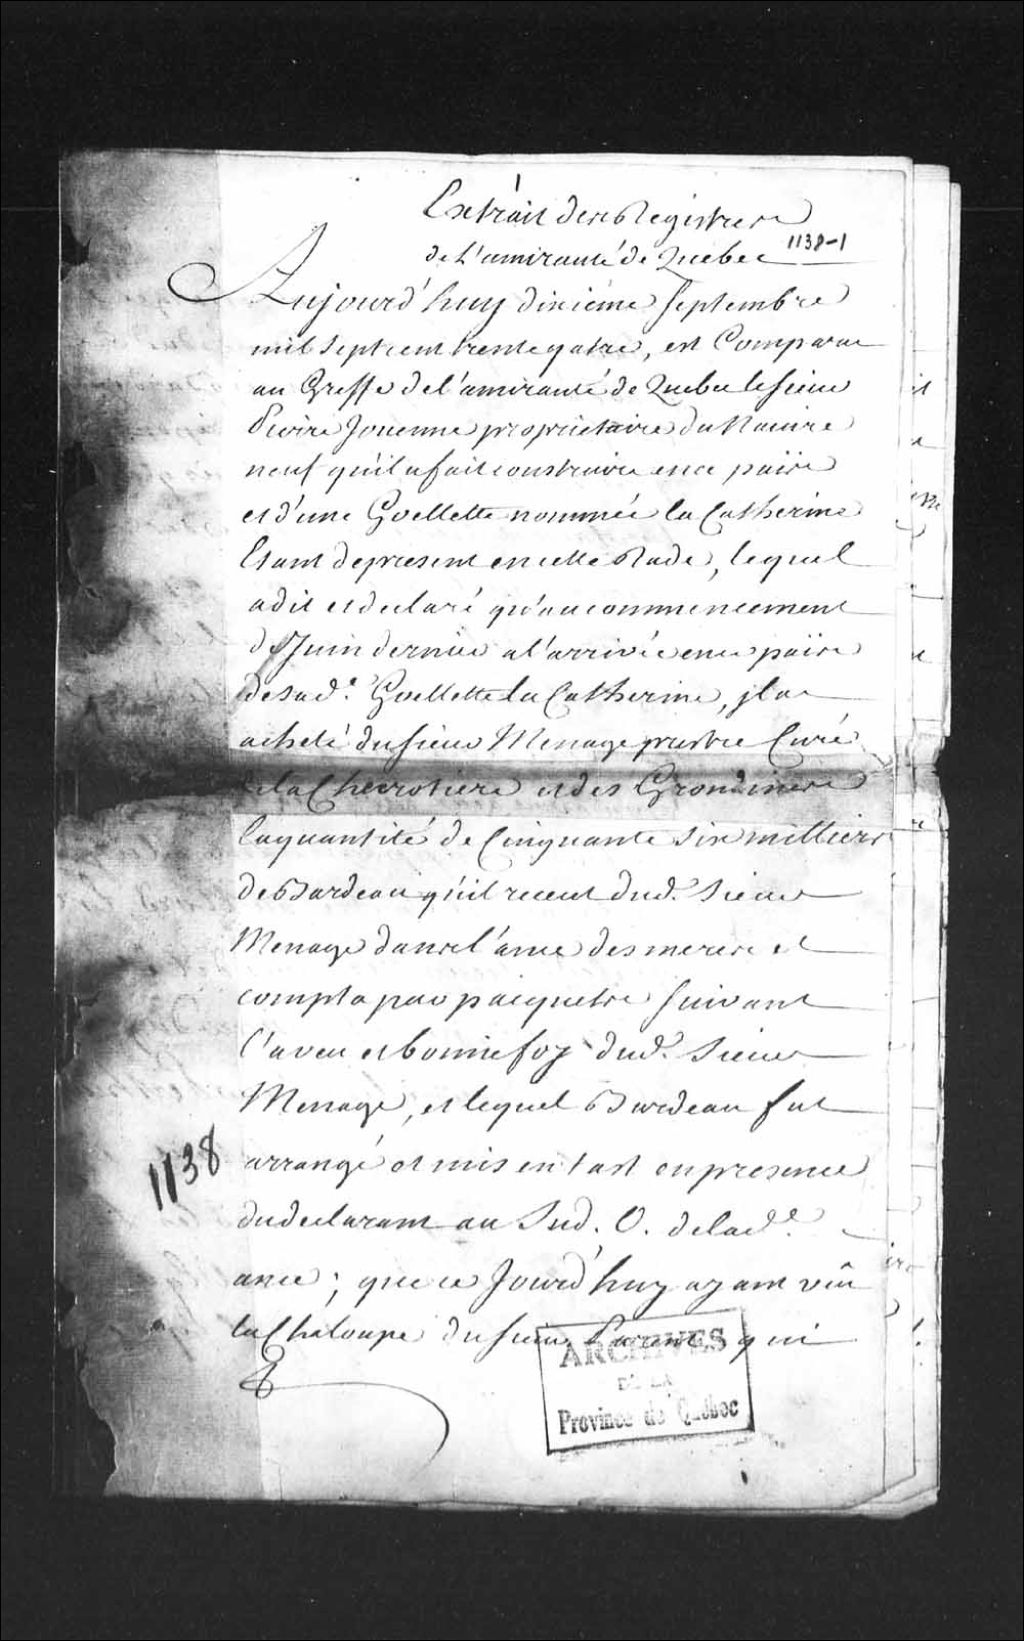 Extrait des Registres
de L'amirauté de Quebec 1138-1
Aujourd'huy dixiéme Septembre
mil Sept cent trente quatre, est Comparu
au Greffe de l'amirauté de Quebec le Sieur
Pierre Jouenne proprietaire du Navire
neuf qu'il a fait construire en ce païs
et d'une Goellette nommée la Catherine
Etant de present en cette Rade, lequel
a dit et declaré qu'au commencement
de Juin dernier a l'arrivée en ce païs
de sad.e Goellette la Catherine, jl a
acheté du Sieur Menage prestre Curé
de la Chevrotiere et des Grondines
la quantité de Cinquante Six milliers
de Bardeau qu'il receut dud. Sieur
Menage dans l'ance des meres et
compta par pacquets Suivant
l'aveu et bonne foy dud. Sieur
Menage, et lequel Bardeau fut
arrangé et mis en tas en presence
du declarant au Sud. O. de lad.e
ance; que ce Jourd'huy ayant veû
la Chaloupe du Sieur Parent qui
1138
ARCHIVES
DE LA
Province de Québec